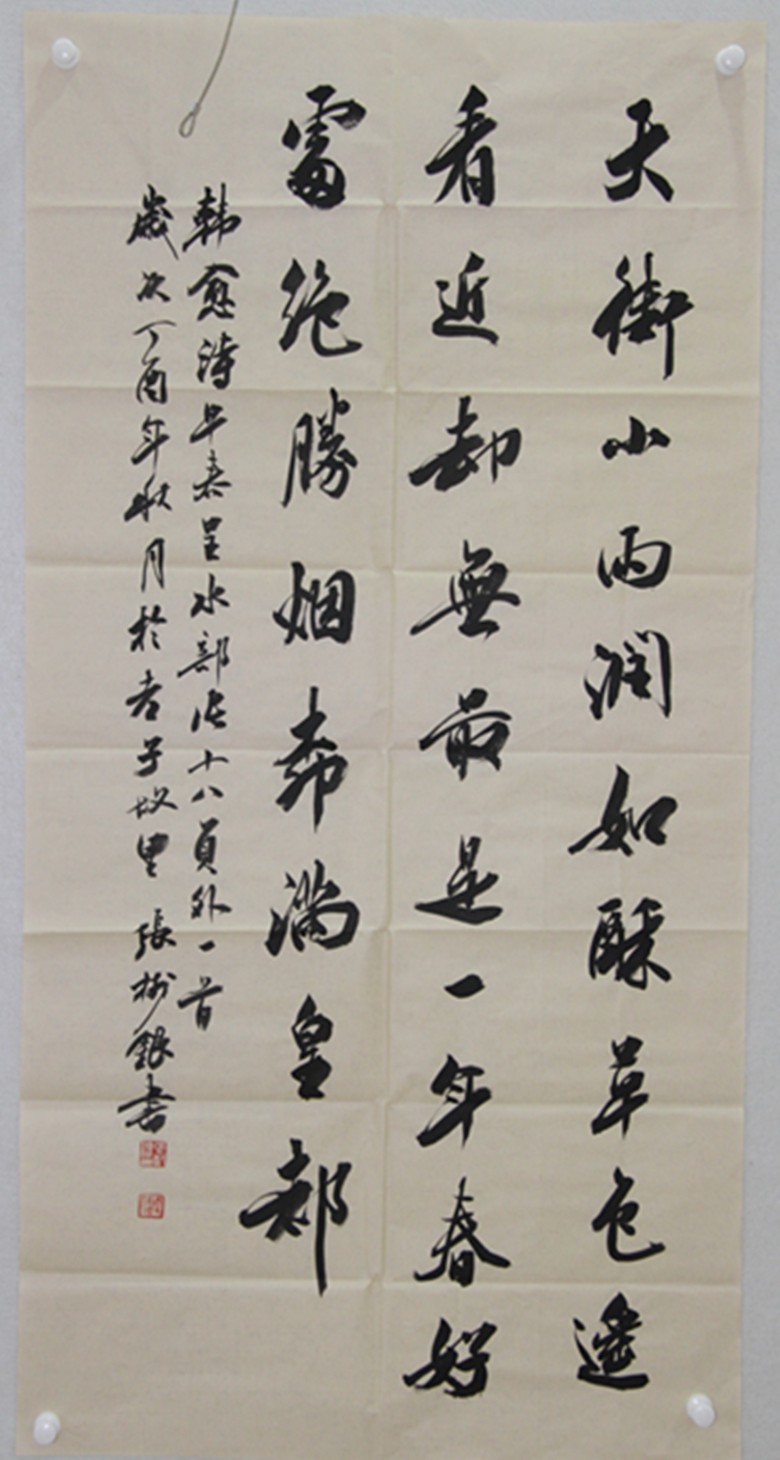 天街小雨潤如酥草色遙
看近却無最是一年春好
處絕勝烟柳滿皇都
韓愈詩早春呈水部張十八員外一首
歲次丁酉年秋月於老子故里 張樹銀書